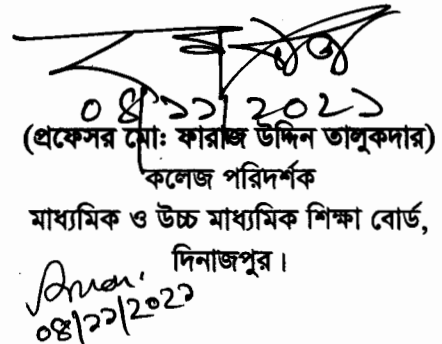 ০৪/১১/২০২১
(প্রফেসর মো: ফারাজ উদ্দিন তালুকদার)
কলেজ পরিদর্শক
মাধ্যমিক ও উচ্চ মাধ্যমিক শিক্ষা বোর্ড,
দিনাজপুর।
০৪/১১/২০২১